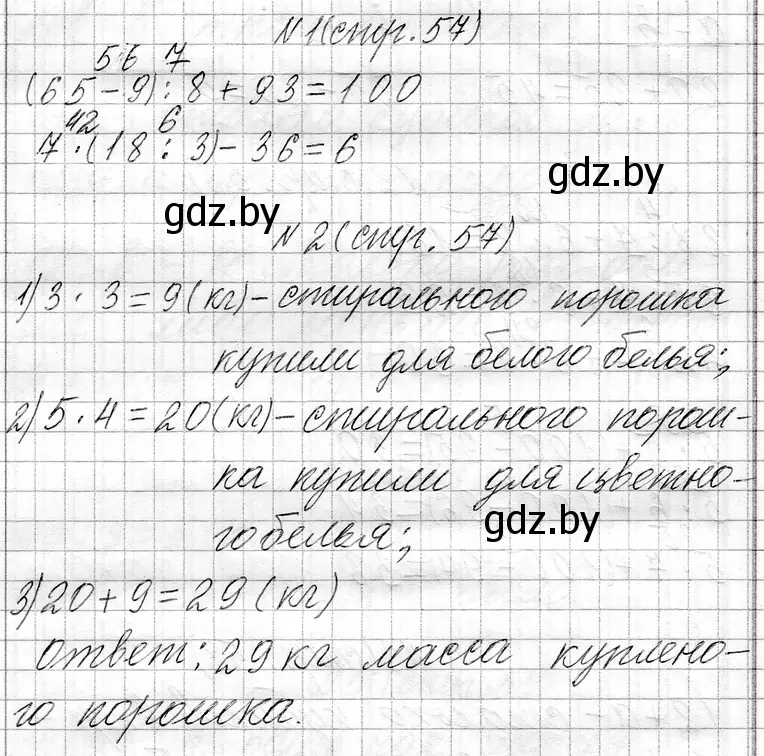 N1(стр. 57)
56 7
(65-9):8+93=100
42 6
7·(18:3)-36=6
gdz.by
gdz.by
N2(стр. 57)
1) 3·3=9(кг)-стирального порошка
купили для белого белья;
2) 5·4=20(кг)-стирального порош-
ка купили для цветно-
го белья;
gdz.by
3) 20+9=29(кг)
Ответ: 29 кг масса куплено-
го порошка.